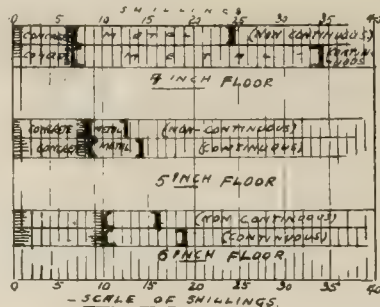 SHILLINGS
0 5 10 15 20 25 30 35 40
CONCRETE METAL (NON CONTINUOUS)
CONCRETE METAL CONTINUOUS
4 INCH FLOOR
CONCRETE METAL (NON-CONTINUOUS)
CONCRETE METAL (CONTINUOUS)
5 INCH FLOOR
(NON CONTINUOUS)
(CONTINUOUS)
6 INCH FLOOR
0 5 10 15 20 25 30 35 40
- SCALE OF SHILLINGS.